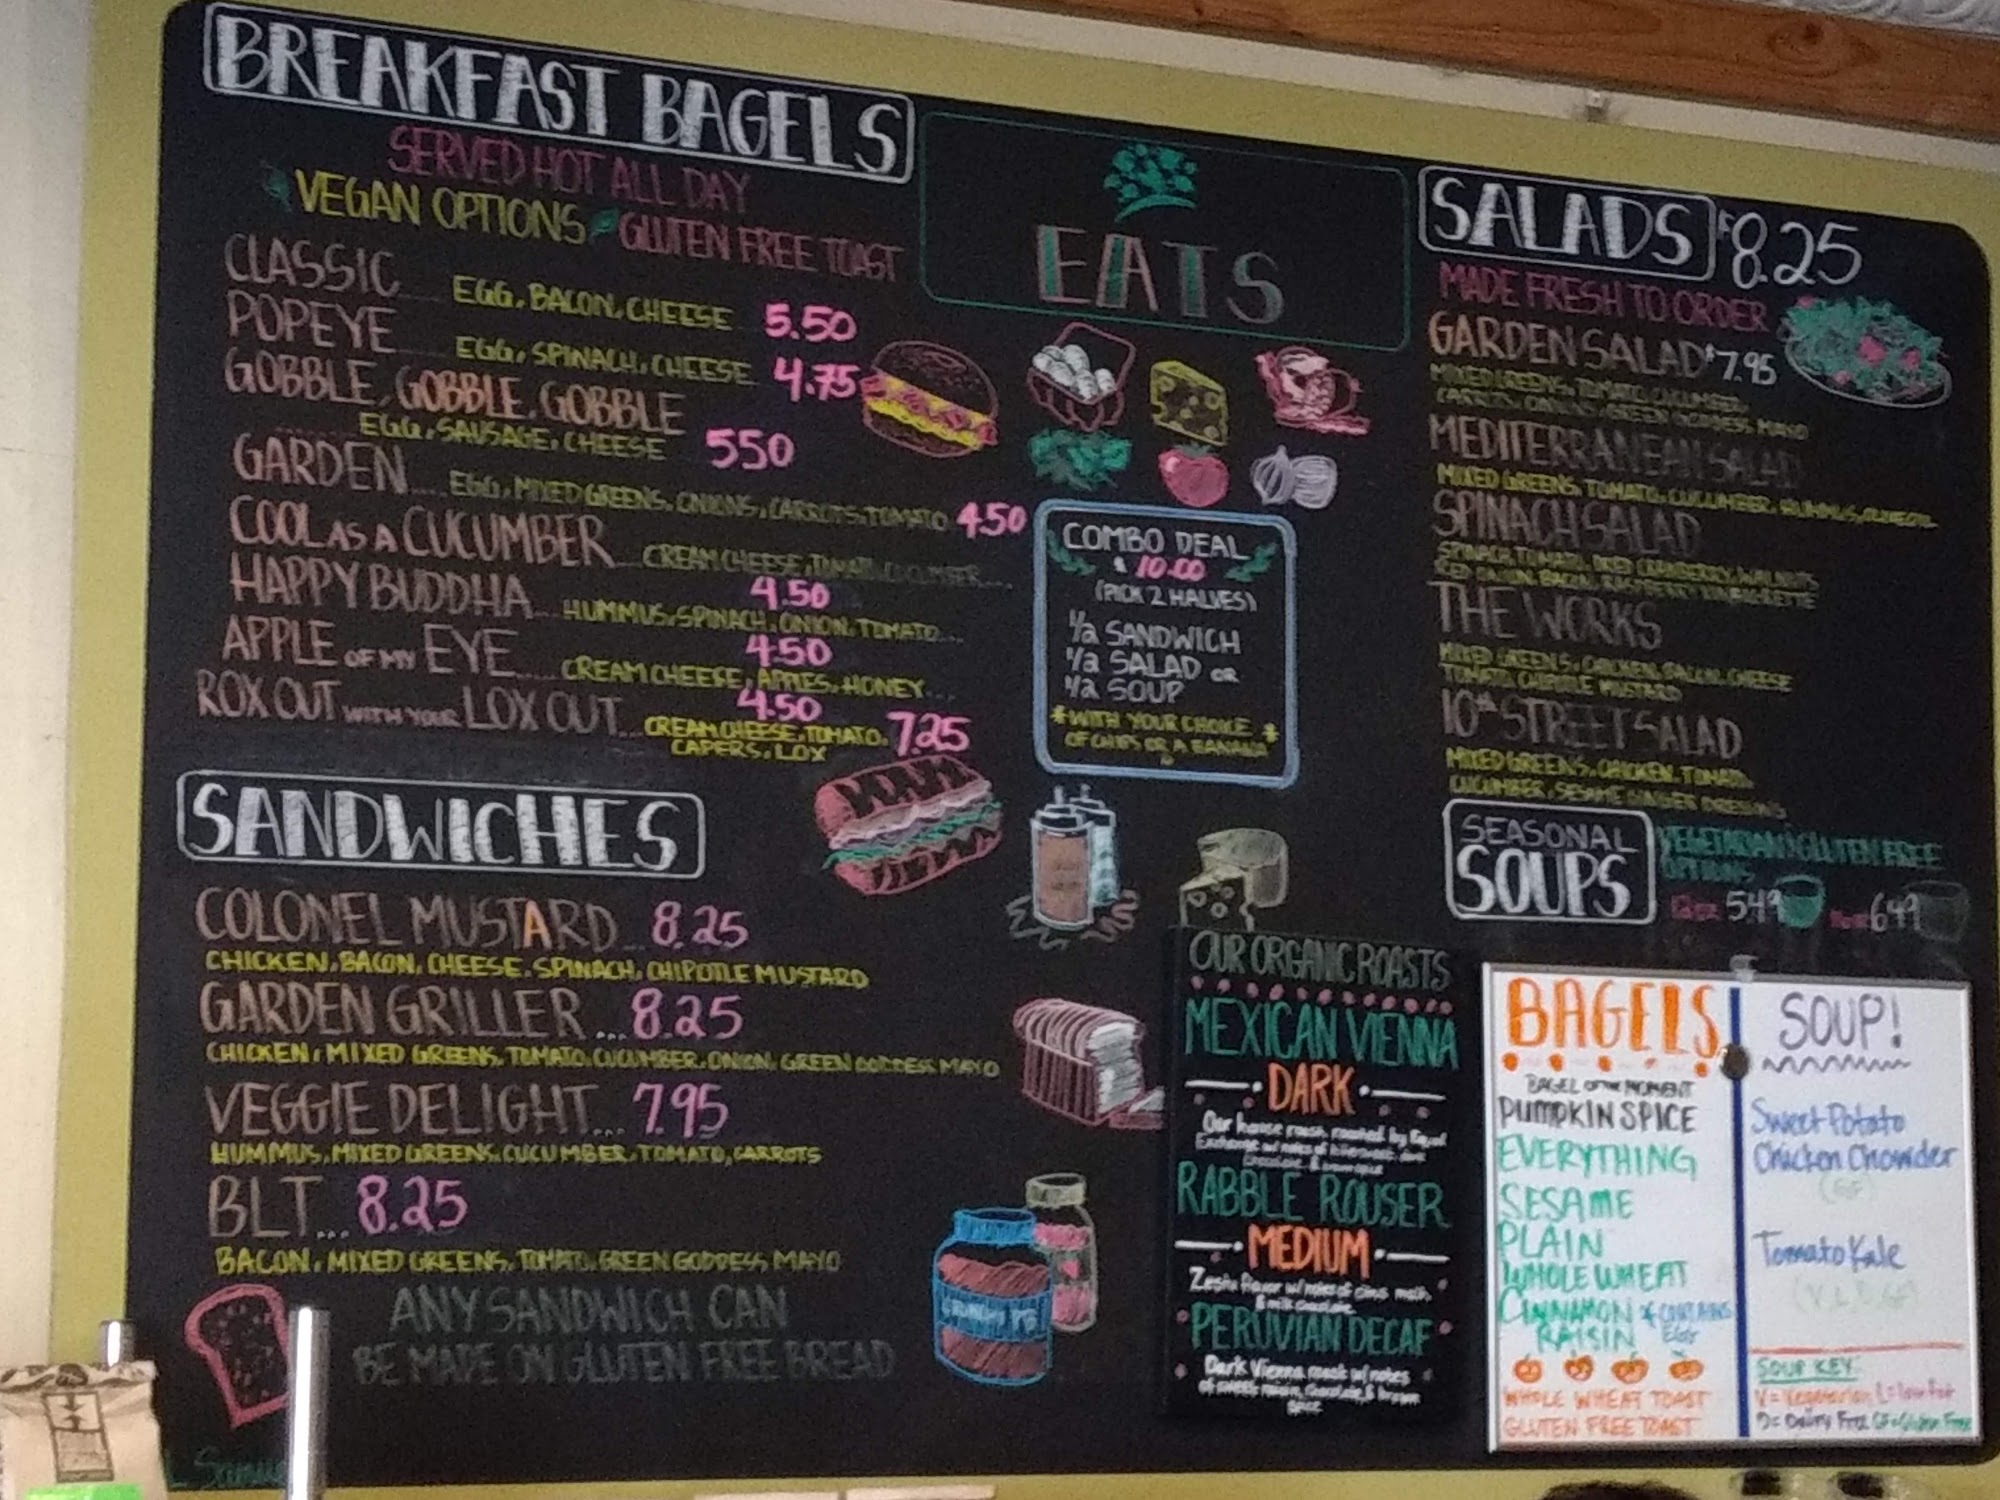 BREAKFAST BAGELS
SERVED HOT ALL DAY
VEGAN OPTIONS GLUTEN FREE TOAST
CLASSIC EGG, BACON, CHEESE 5.50
POPEYE EGG, SPINACH, CHEESE 4.75
GOBBLE, GOBBLE, GOBBLE
EGG, SAUSAGE, CHEESE 550
GARDEN.... EGG, MIXED GREENS, ONIONS, CARROTS, TOMATO 4.50
COOL AS A CUCUMBER.... CREAM CHEESE, TOMATO, CUCUMBER....
4.50
HAPPY BUDDHA... HUMMUS, SPINACH, ONION, TOMATO...
4.50
APPLE OF MY EYE.... CREAM CHEESE, APPLES, HONEY...
4.50
ROX OUT WITH YOUR LOX OUT... CREAM CHEESE, TOMATO, 7.25
CAPERS, LOX
SANDWICHES
COLONEL MUSTARD... 8.25
CHICKEN, BACON, CHEESE, SPINACH, CHIPOTLE MUSTARD
GARDEN GRILLER... 8.25
CHICKEN, MIXED GREENS, TOMATO, CUCUMBER, ONION, GREEN GODDESS MAYO
VEGGIE DELIGHT... 7.95
HUMMUS, MIXED GREENS, CUCUMBER, TOMATO, CARROTS
BLT... 8.25
BACON, MIXED GREENS, TOMATO, GREEN GODDESS MAYO
ANY SANDWICH CAN
BE MADE ON GLUTEN FREE BREAD
EATS
COMBO DEAL
$10.00
(PICK 2 HALVES)
1/2 SANDWICH
1/2 SALAD OR
1/2 SOUP
*WITH YOUR CHOICE *
OF CHIPS OR A BANANA
OUR ORGANIC ROASTS
MEXICAN VIENNA
DARK
Our house roast, roasted by Equal
Exchange w/ notes of
chocolate &
RABBLE ROUSER
MEDIUM
Zesty flavor w/ notes of
& milk chocolate
PERUVIAN DECAF
Dark Vienna roast w/ notes
of sweet raisin, chocolate, & brown
spice
SALADS $8.25
MADE FRESH TO ORDER
GARDEN SALAD $7.95
MIXED GREENS, TOMATO, CUCUMBER,
CARROTS, ONIONS, GREEN GODDESS MAYO
MEDITERRANEAN SALAD
MIXED GREENS, TOMATO, CUCUMBER, HUMMUS, OLIVE OIL
SPINACH SALAD
SPINACH, TOMATO, DRIED CRANBERRY, WALNUTS
RED ONION, BACON, RASPBERRY VINAIGRETTE
THE WORKS
MIXED GREENS, CHICKEN, BACON, CHEESE
TOMATO, CHIPOTLE MUSTARD
10TH STREET SALAD
MIXED GREENS, CHICKEN, TOMATO,
CUCUMBER, SESAME GINGER DRESSING
SEASONAL SOUPS
VEGETARIAN & GLUTEN FREE
OPTIONS
5.49 6.49
BAGELS
BAGEL OF THE MOMENT
PUMPKIN SPICE
EVERYTHING
SESAME
PLAIN
WHOLE WHEAT
CINNAMON * CONTAINS
RAISIN EGG
WHOLE WHEAT TOAST
GLUTEN FREE TOAST
SOUP!
Sweet Potato
Chicken Chowder
(GF)
Tomato Kale
SOUP KEY:
V = Vegetarian L = low fat
D = Dairy Free GF = Gluten Free